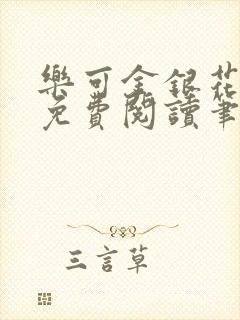 樂可金銀花
免費閱讀筆
三言草